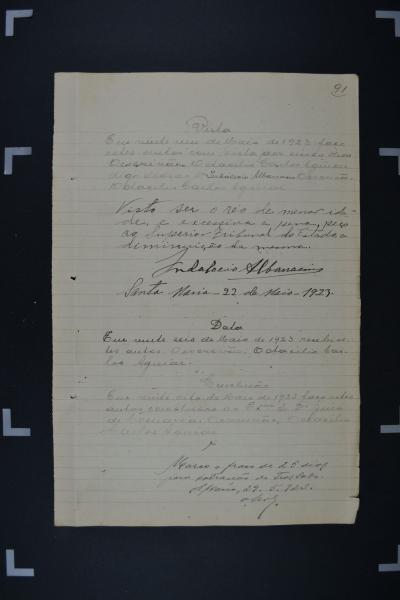 91
Vista
Em vinte um de Maio de 1923 faço
estes autos com vista por
Escrivão, Octacilio Carlos Aguiar
digo Indalecio Albanaz Escrivão,
Octacilio Carlos Aguiar
Visto ser o réo de menor ida-
de, e excessiva a pena, peço
ao Superior Tribunal do Estado a
diminuição da mesma.
Santa Maria - 22 de Maio - 1923.
Data
Em vinte seis de Maio de 1923 recebi es-
tes autos. O escrivão, Octacilio Car-
los Aguiar.
Conclusão
Em vinte oito de Maio de 1923 faço estes
autos conclusos ao Exmo Sr Dr Juiz
de Comarca. O escrivão, Octacilio
Carlos Aguiar
Marco o praso de 25 dias
para extracção do traslado.
S. Maria, 29. 5. 923.